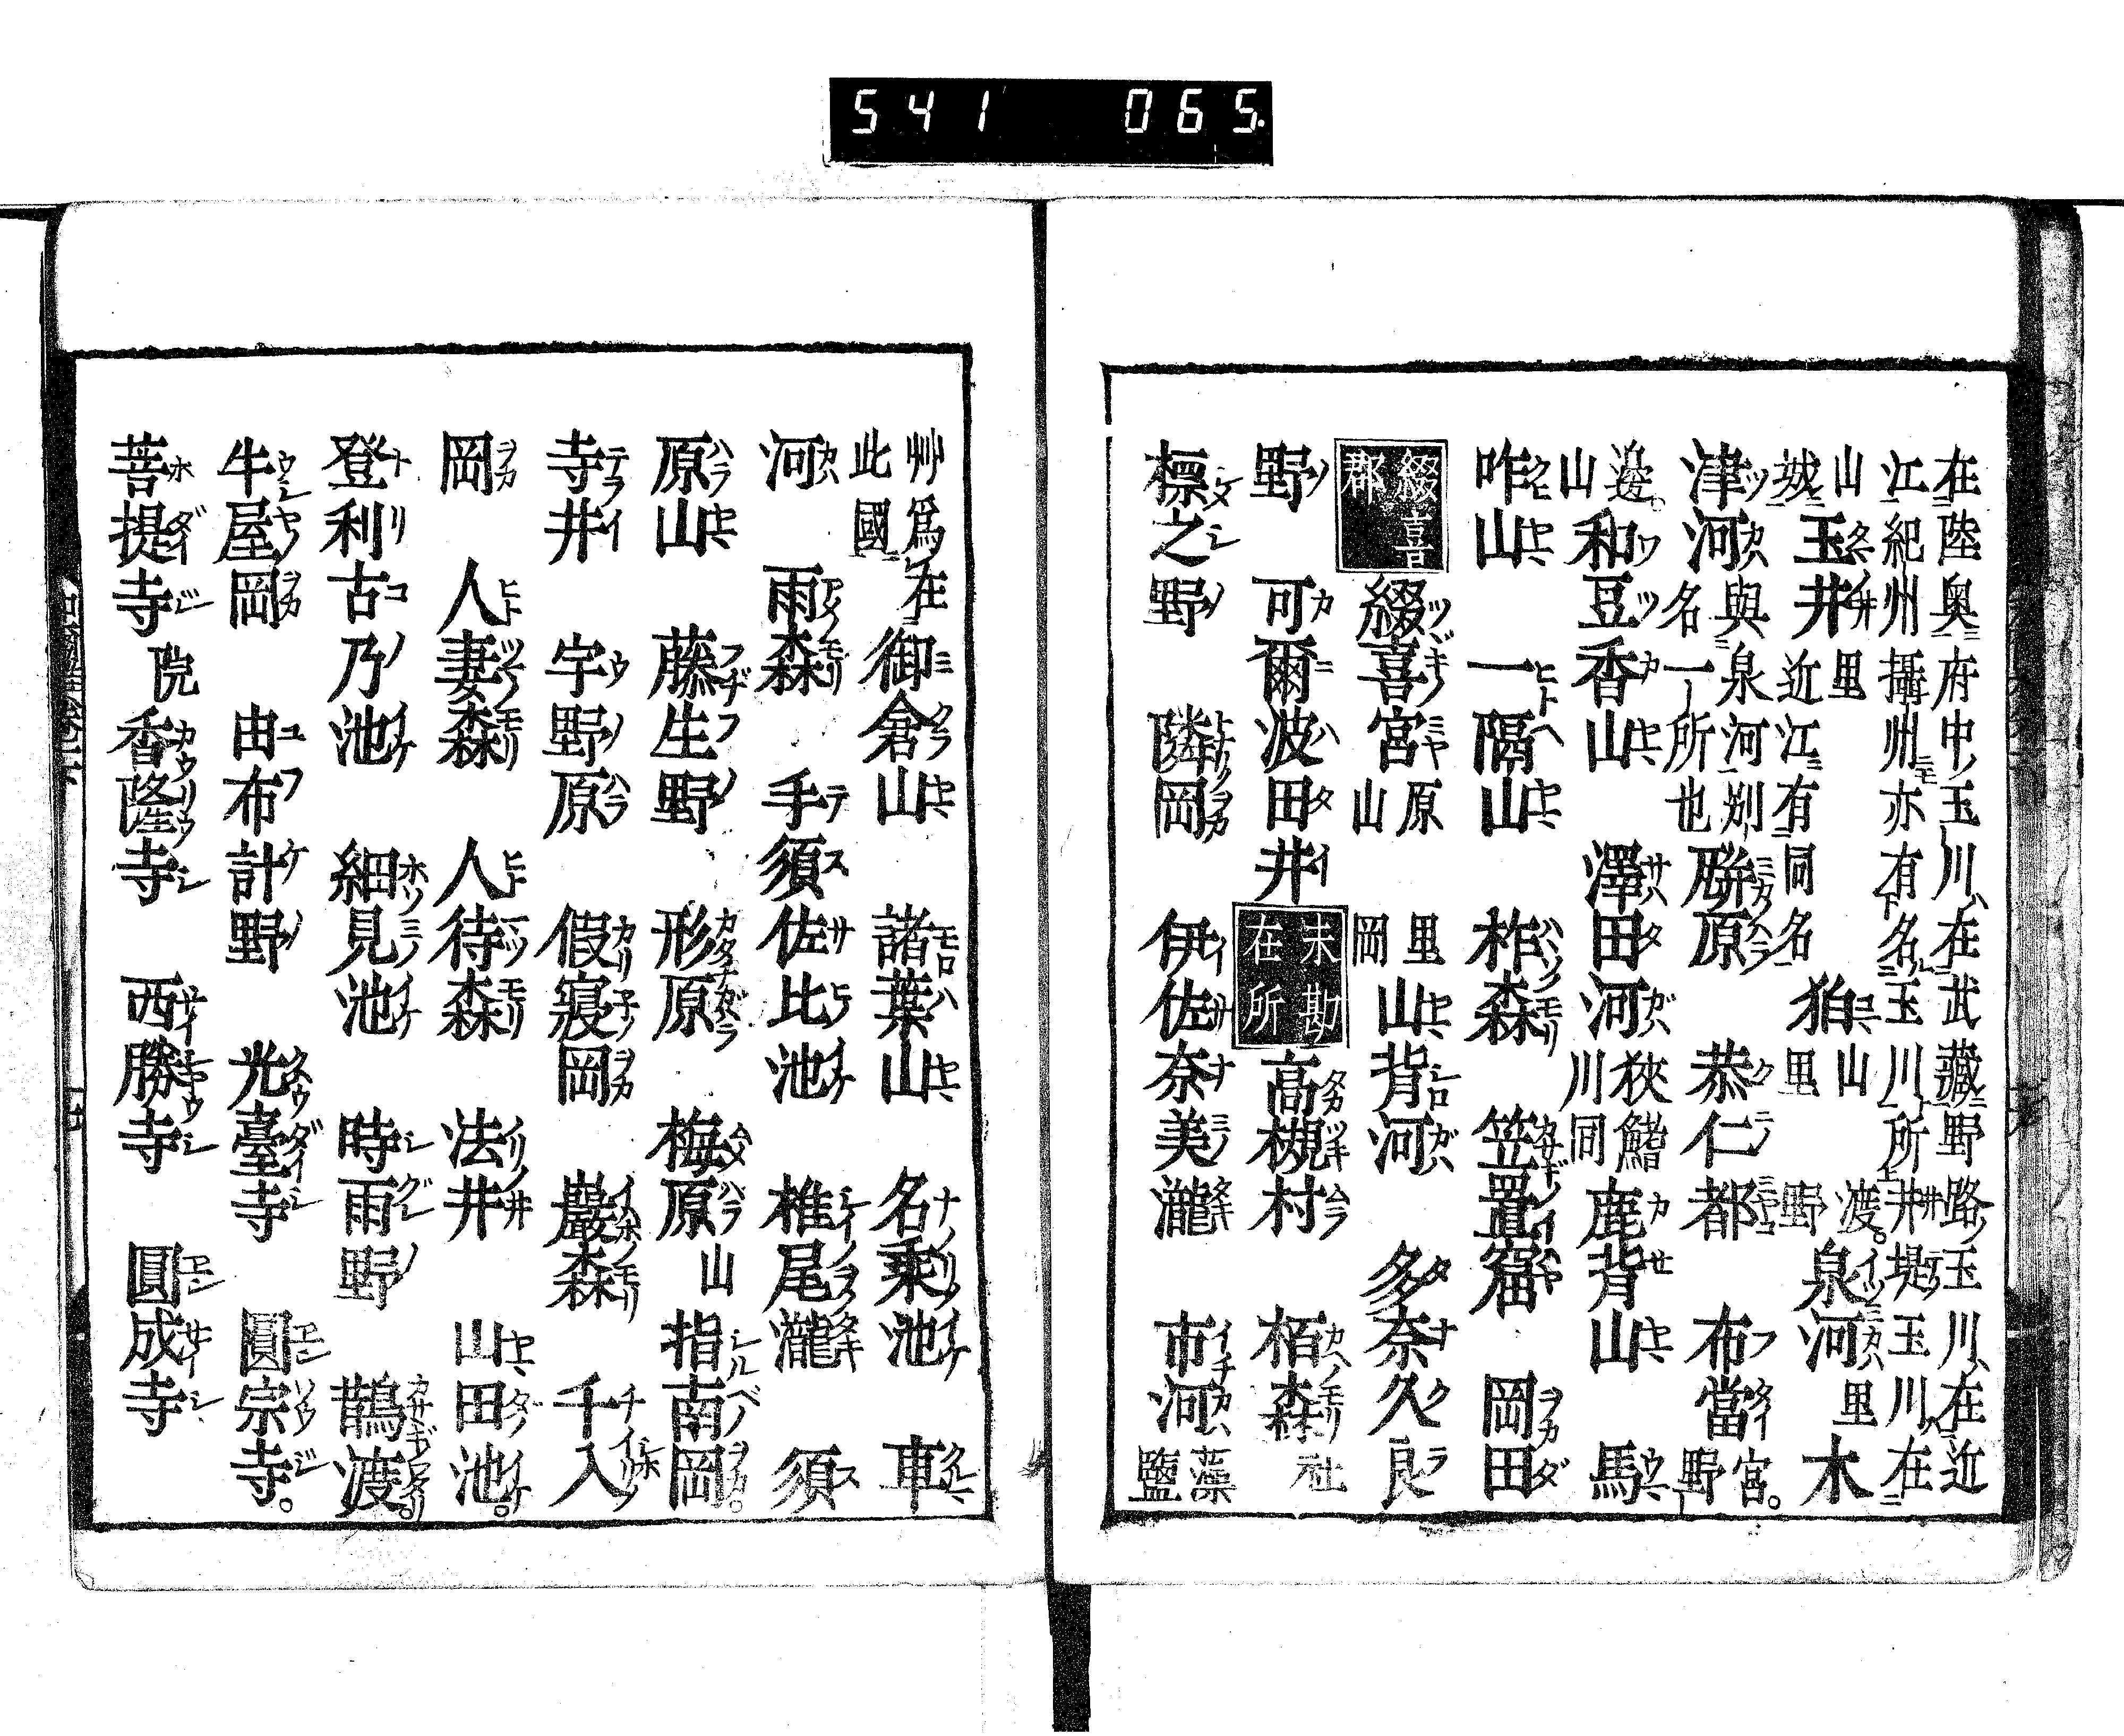 541 065.
在陸奥府中玉川在武藏野路玉川在近
江紀州攝州亦有名玉川所井堤玉川在
山城玉井里近江有同名狛山里渡野泉河里木
津河與泉河別名一所也瓶原恭仁都布當宮野
邊山和豆香山澤田河狹鰭川同鹿背山馬
咋山一隔山柞森笠置窟岡田
綴喜郡綴喜宮原山里岡山背河多奈久良
野可爾波田井未勘在所高槻村栢森社
標之野隣岡伊佐奈美瀧市河藻鹽
艸爲在此國御倉山諸葉山名乗池車
河雨森手須佐比池椎尾瀧須
原山藤生野形原梅原山指南岡
寺井宇野原假寢岡巖森千入
岡人妻森人待森法井山田池
登利古乃池細見池時雨野鵲渡
牛屋岡由布計野光臺寺圓宗寺
菩提寺院香隆寺西勝寺圓成寺